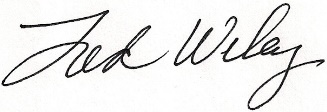 Fred Wiley